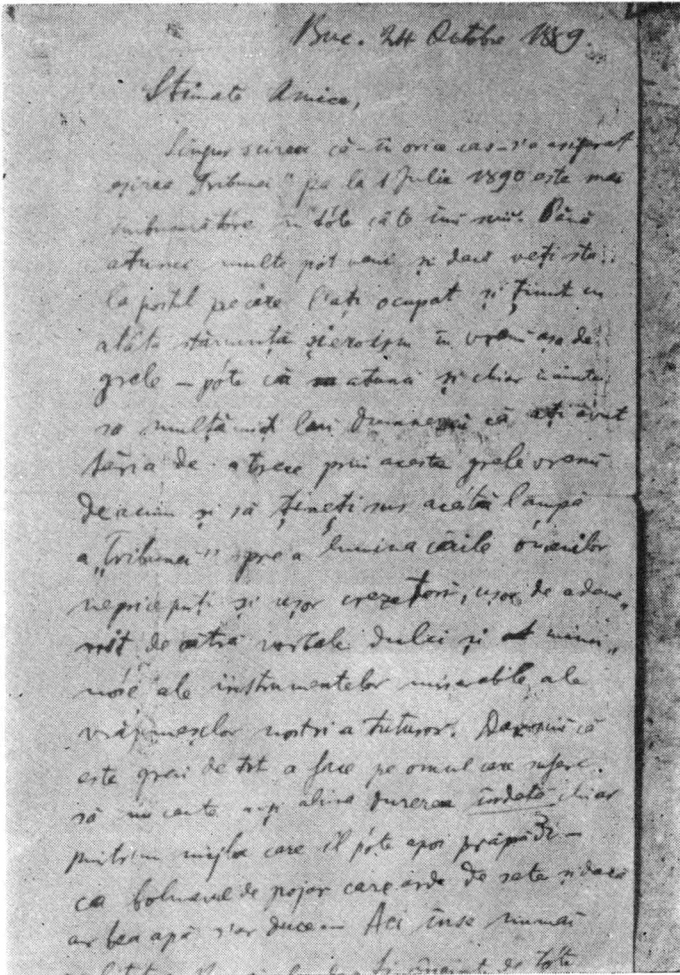 Buc. 24 Octobre 1889.
Stimate Amice,
Singur scirea că-ți orice cas s'a asigurat
eșirea „Tribunei” pe la 1 Iulie 1890 este mai
îmbucurătore în tóte câte îmi scrii. Până
atunci multe pot veni și dacă veți sta
la postul pe care l'ați ocupat și ținut cu
atâta stăruință și eroism în vremi așa de
grele — póte că atunci și chiar înainte
so mulțămiț lui Dumnezeu că ați avut
tăria de a trece prin aceste grele vremi
de acum și să țineți sus acéstă lampă
a „Tribunei” spre a lumina căile ómenilor
nepricepuți și ușor crezetori, ușor de ademe-
nit de cătră vorbele dulci și
ale instrumentelor miserabile ale
vrăjmașilor nostri a tuturor. Dar
este greu de tot a face pe omul care sufere
să nu caute a-și alina durerea îndată chiar
printr'un mijloc care îl póte apoi prăpădi —
ca bolnavul de pojar care arde de sete și dacă
ar bea apă s'ar duce — Aci însă numai
de tóte